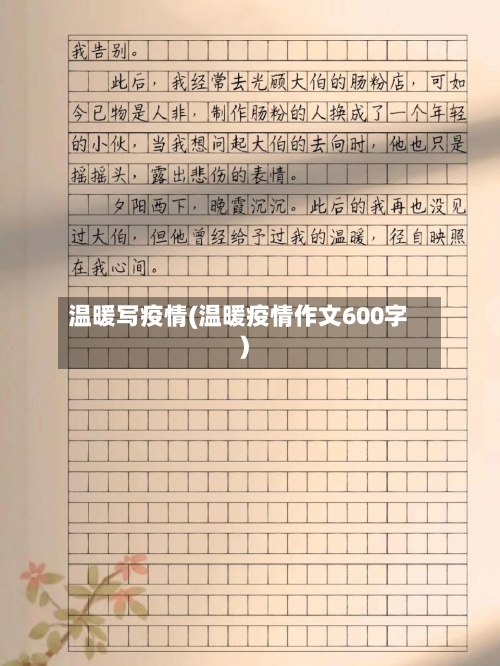 我告别。
此后，我经常去光顾大伯的肠粉店，可如
今已物是人非，制作肠粉的人换成了一个年轻
的小伙，当我想问起大伯的去向时，他也只是
摇摇头，露出悲伤的表情。
夕阳西下，晚霞沉沉。此后的我再也没见
过大伯，但他曾经给予过我的温暖，径自映照
在我心间。
温暖写疫情(温暖疫情作文600字
)